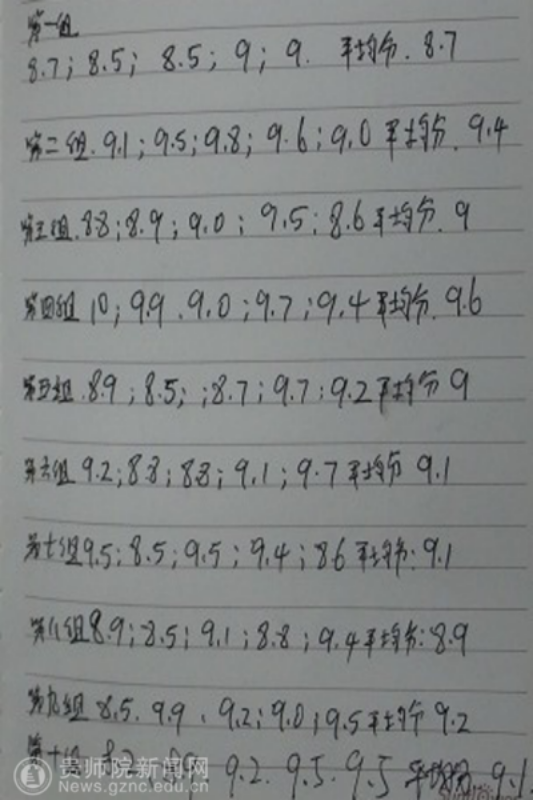 第一组
8.7; 8.5; 8.5; 9; 9. 平均分. 8.7
第二组. 9.1; 9.5; 9.8; 9.6; 9.0 平均分. 9.4
第三组. 8.8; 8.9; 9.0; 9.5; 8.6 平均分. 9
第四组 10; 9.9. 9.0; 9.7; 9.4 平均分. 9.6
第五组. 8.9; 8.5; ; 8.7; 9.7; 9.2 平均分 9
第六组 9.2; 8.8; 8.8; 9.1; 9.7 平均分 9.1
第七组 9.5; 8.5; 9.5; 9.4; 8.6 平均分: 9.1
第八组 8.9; 8.5; 9.1; 8.8; 9.4 平均分: 8.9
第九组 8.5. 9.9. 9.2; 9.0; 9.5 平均分 9.2
第十组 9.2. 9.5. 9.5 平均分. 9.1
贵师院新闻网
News.gznc.edu.cn